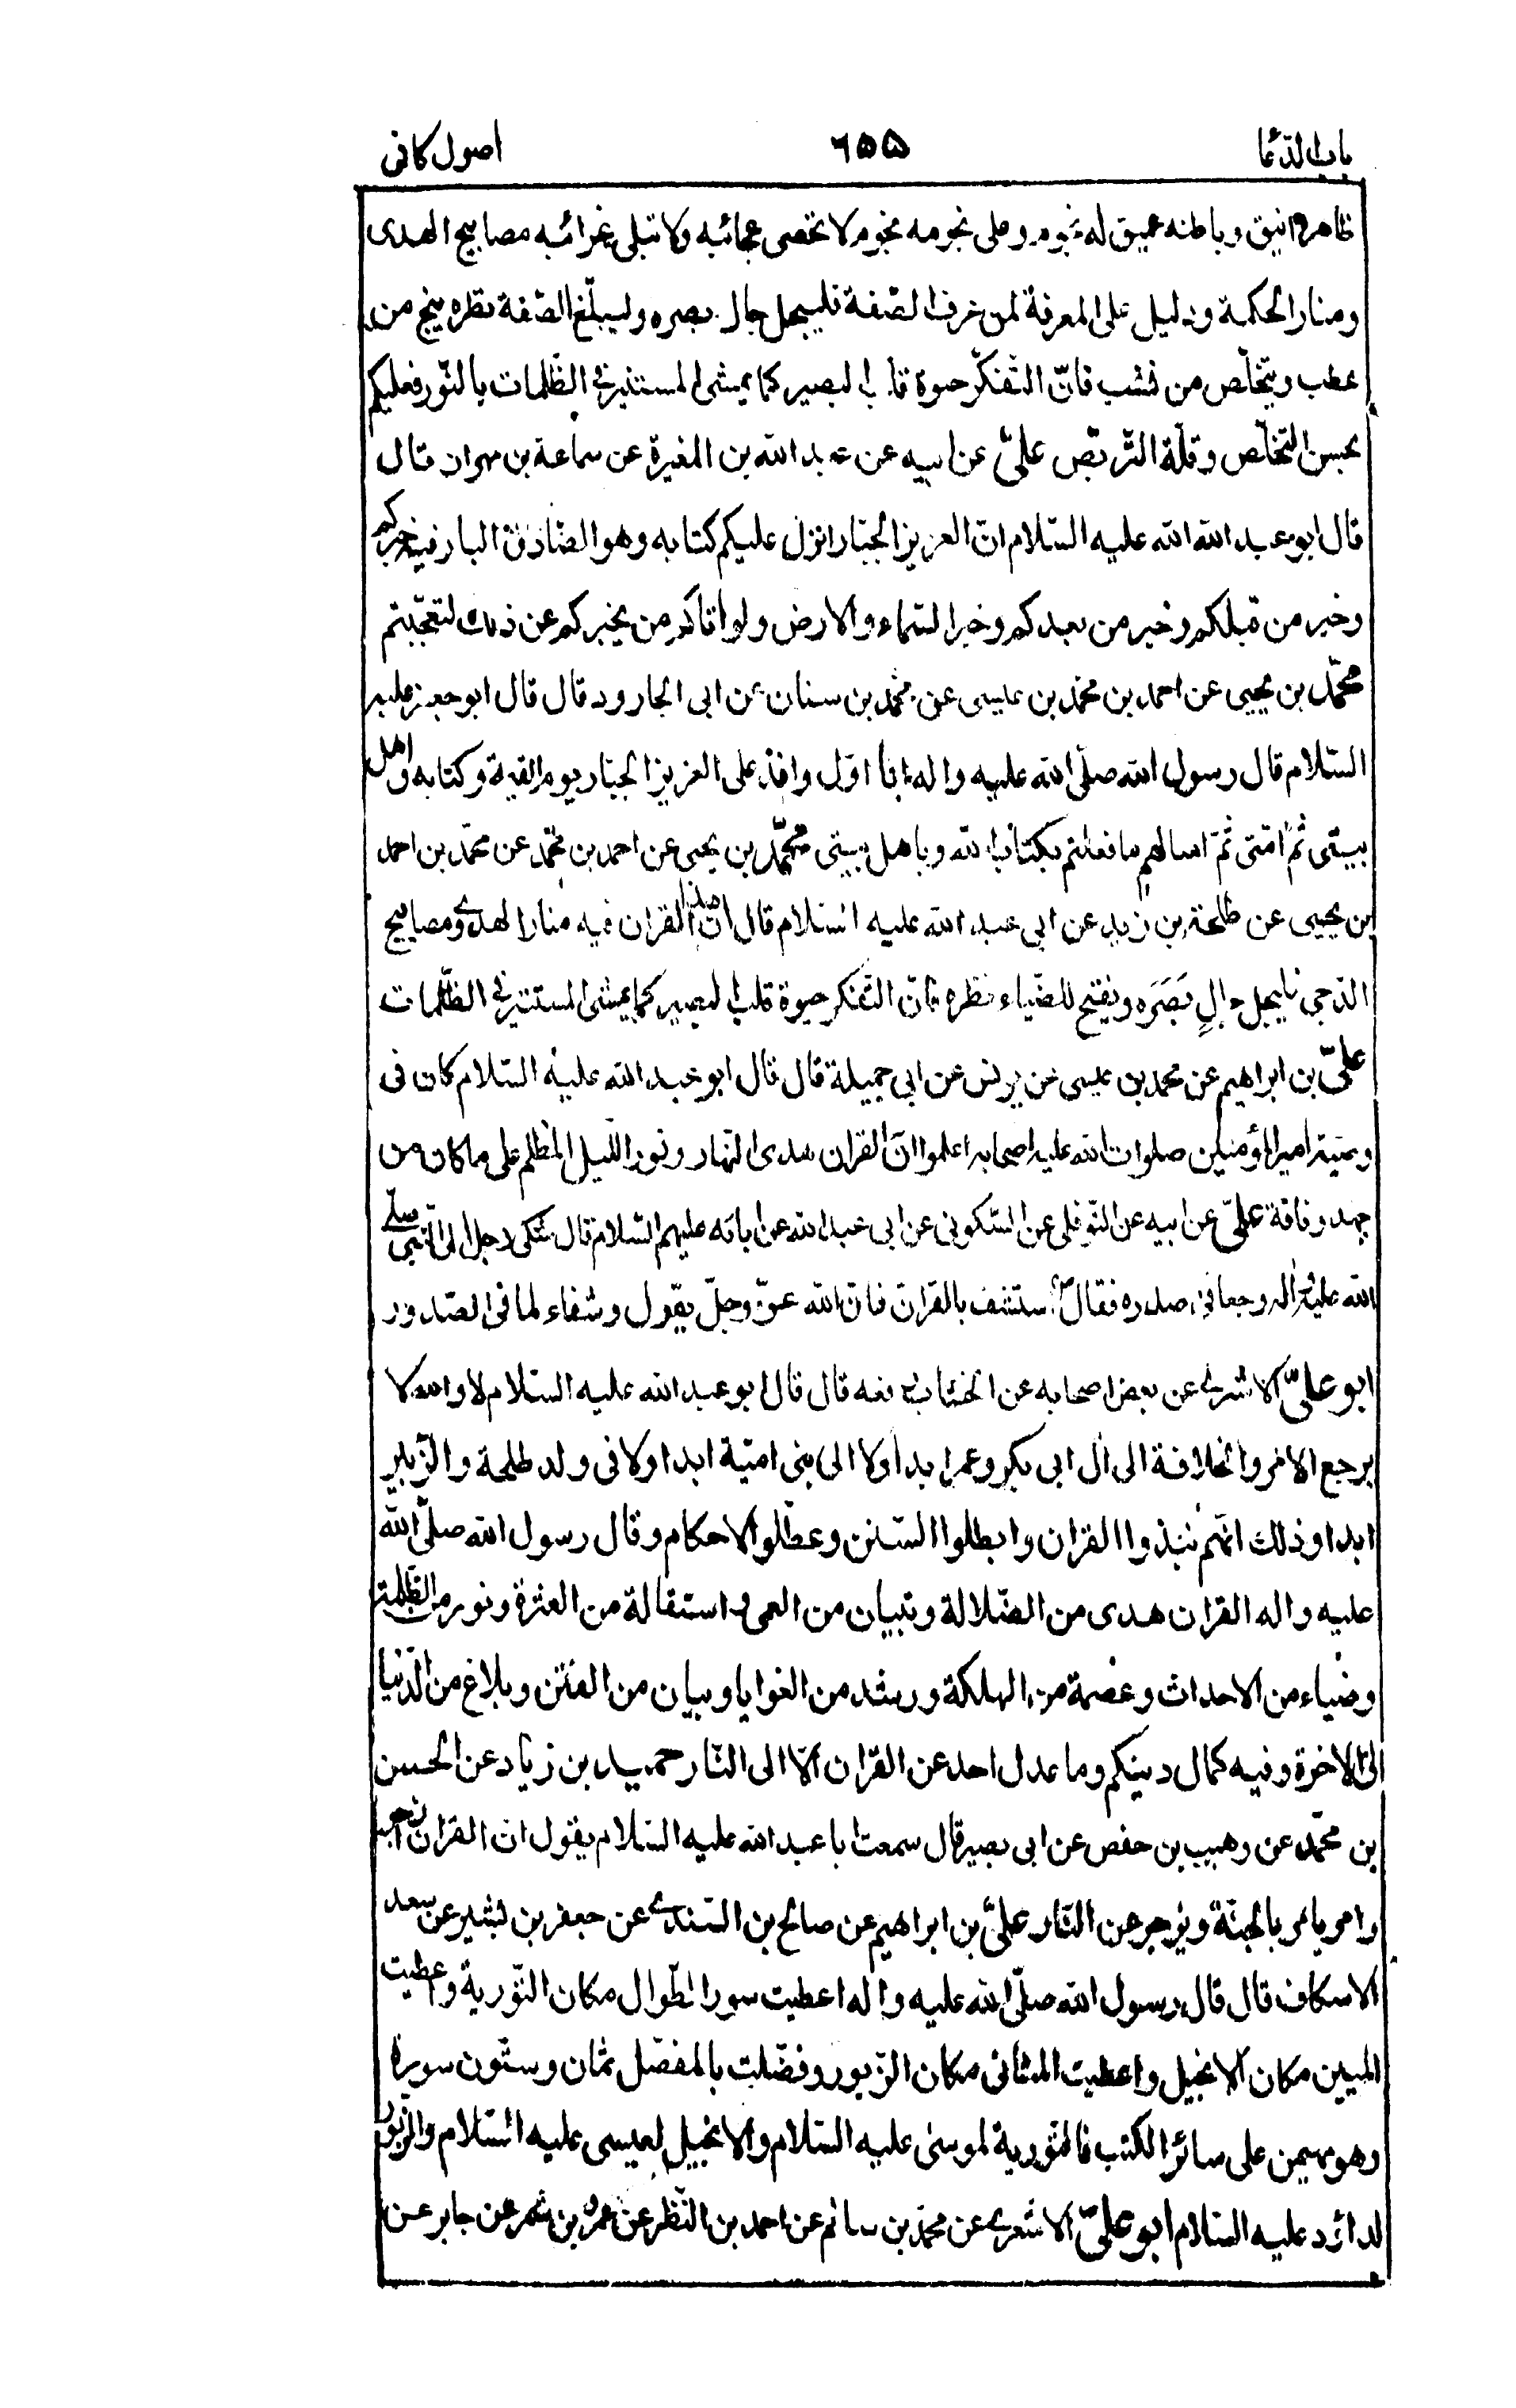 باب الدعا ٦٥٥ اصول كافى
ظاهره انيق وباطنه عميق له نجوم وعلى نجومه نجوم لا تحصى عجائبه ولا تبلى غرائبه مصابيح الهدى
ومنار الحكمة ودليل على المعرفة لمن عرف الصّفة فليجل جال بصره وليبلّغ الصّفة نظره ينج من
عطب ويتخلّص من نشب فانّ التّفكّر حيوة قلب البصير كما يمشى المستنير فى الظّلمات بالنّور فعليكم
بحسن التخلّص وقلّة التّربّص علىّ عن ابيه عن عبد الله بن المغيرة عن سماعة بن مهران قال
قال ابو عبد الله الله عليه السّلام انّ العزيز الجبّار انزل عليكم كتابه وهو الصّادق البار فيه خبركم
وخبر من قبلكم وخبر من بعدكم وخبر السّماء والارض ولو أتاكم من يخبركم عن ذلك لتعجّبتم
محمّد بن يحيى عن احمد بن محمّد بن عيسى عن محمّد بن سنان عن ابى الجارود قال قال ابو جعفر عليه
السّلام قال رسول الله صلّى الله عليه واله انا اوّل وافد على العزيز الجبّار يوم القيمة وكتابه واهل
بيتى ثمّ امّتى ثمّ اسالهم ما فعلتم بكتاب الله وباهل بيتى محمّد بن يحيى عن احمد بن محمّد عن محمّد بن احمد
بن يحيى عن طلحة بن زيد عن ابى عبد الله عليه السّلام قال انّ هذا القران فيه منار الهدى ومصابيح
الدّجى فليجل جالٍ بَصَرَه ويفتح للضّياء نظره فانّ التّفكر حيوة قلب البصير كما يمشى المستنير فى الظّلمات
علىّ بن ابراهيم عن محمد بن عيسى عن يونس عن ابى جميلة قال قال ابو عبد الله عليه السّلام كان فى
وصيّة امير المؤمنين صلوات الله عليه اصحابه اعلموا انّ القران هدى النّهار ونور اللّيل المظلم على ما كان من
جهد وفاقة علىّ عن ابيه عن النّوفلى عن السّكونى عن ابى عبد الله عن ابائه عليهم السّلام قال شكى رجل الى النّبى صلّى
الله عليه واله وجعا فى صدره فقال استشف بالقران فانّ الله عزّ وجلّ يقول وشفاء لما فى الصّدور
ابو علىّ الاشعرى عن بعض اصحابه عن الخشّاب رفعه قال قال ابو عبد الله عليه السّلام لا والله لا
يرجع الامر والخلافة الى ال ابى بكر وعمر ابدا ولا الى بنى اميّة ابدا ولا فى ولد طلحة والزّبير
ابدا وذلك انّهم نبذوا القران وابطلوا السّنن وعطّلوا الاحكام وقال رسول الله صلّى الله
عليه واله القران هدى من الضّلالة وتبيان من العمى واستقالة من العثرة ونور من الظّلمة
وضياء من الاحداث وعصمة من الهلكة ورشد من الغوايا وبيان من الفتن وبلاغ من الدّنيا
الى الاخرة وفيه كمال دينكم وما عدل احد عن القران الّا الى النّار حميد بن زياد عن الحسن
بن محمّد عن وهيب بن حفص عن ابى بصير قال سمعت ابا عبد الله عليه السّلام يقول ان القران زاجر
وامر يامر بالجنّة ويزجر عن النّار علىّ بن ابراهيم عن صالح بن السّندى عن جعفر بن بشير عن سعد
الاسكاف قال قال رسول الله صلّى الله عليه واله اعطيت سور الطّوال مكان التّورية واعطيت
المبين مكان الانجيل واعطيت المثانى مكان الزّبور وفضّلت بالمفصّل ثمان وستّون سورة
وهو مهيمن على سائر الكتب فالتّورية لموسى عليه السّلام والانجيل لعيسى عليه السّلام والزّبور
لداؤد عليه السّلام ابو علىّ الاشعرى عن محمّد بن سالم عن احمد بن النّظر عن عمرو بن شمر عن جابر عن